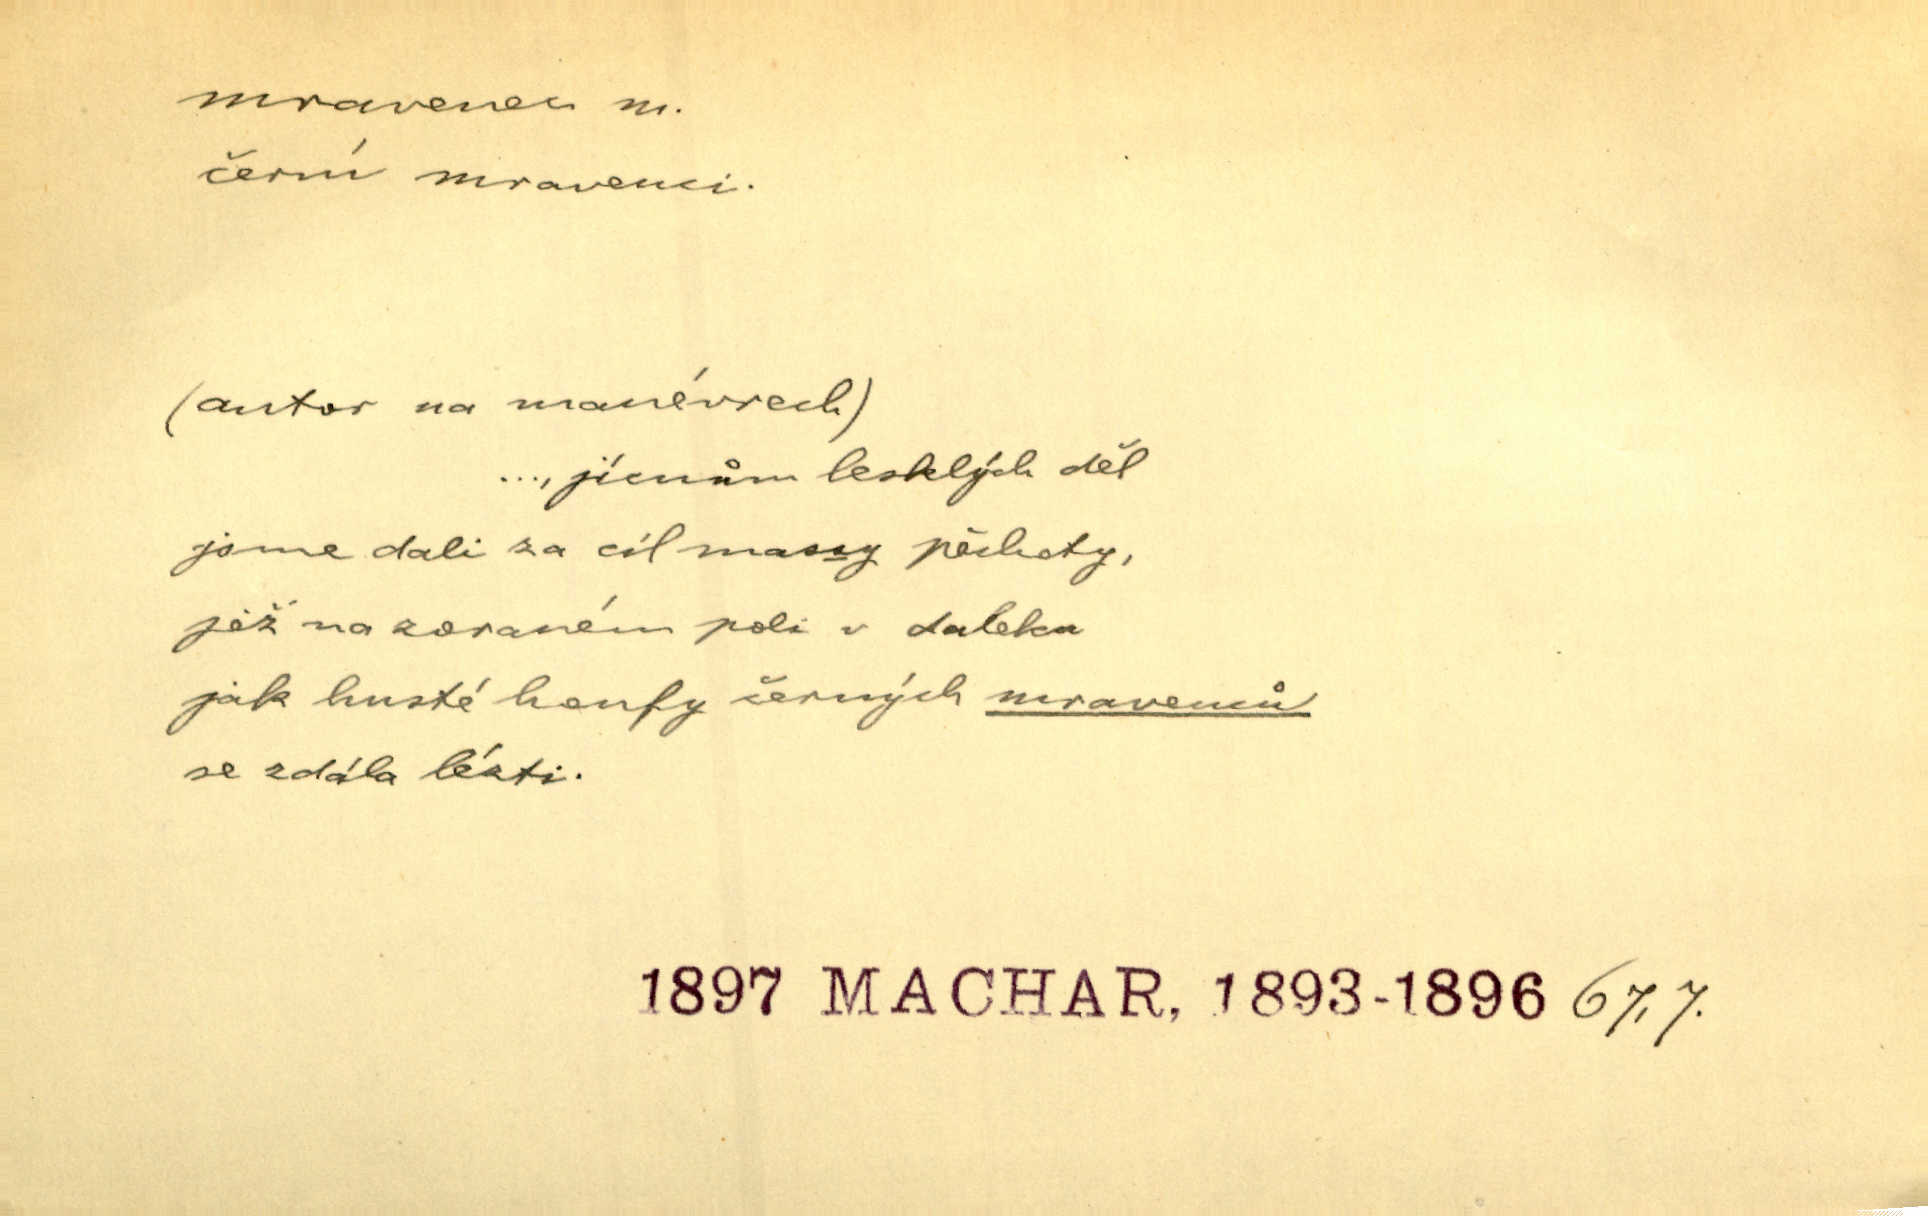 mravenec m.
černí mravenci.
(autor na manévrech)
..., jícnům lesklých děl
jsme dali za cíl massy pěchoty,
jež na zoraném poli v dálka
jak husté houfy černých mravenců
se zdála lézti.
1897 MACHAR, 1893-1896 67,7.